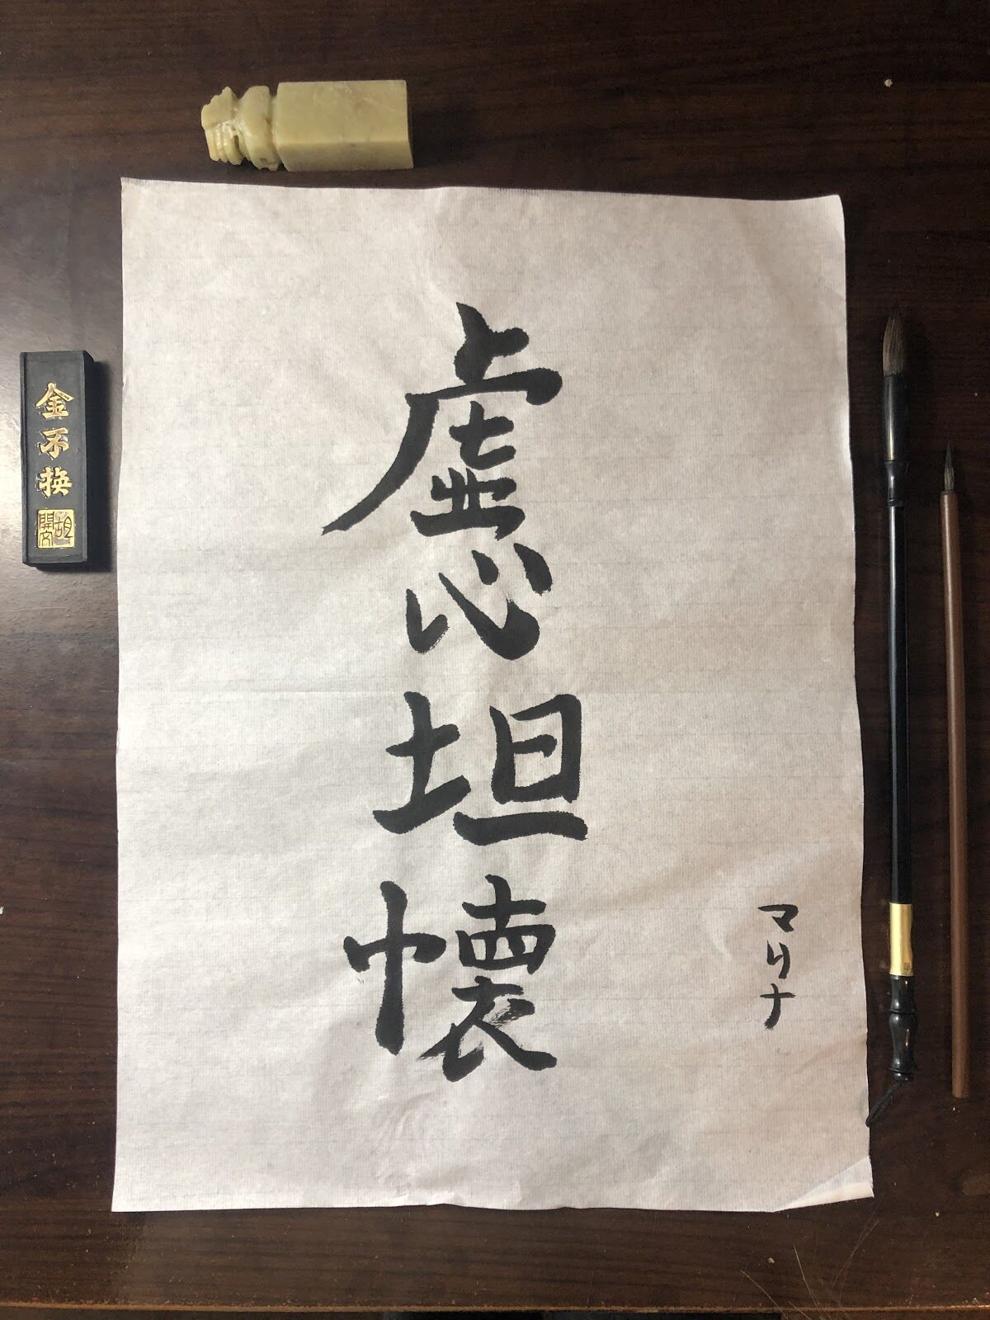 虚心坦懐
マリナ
金不換